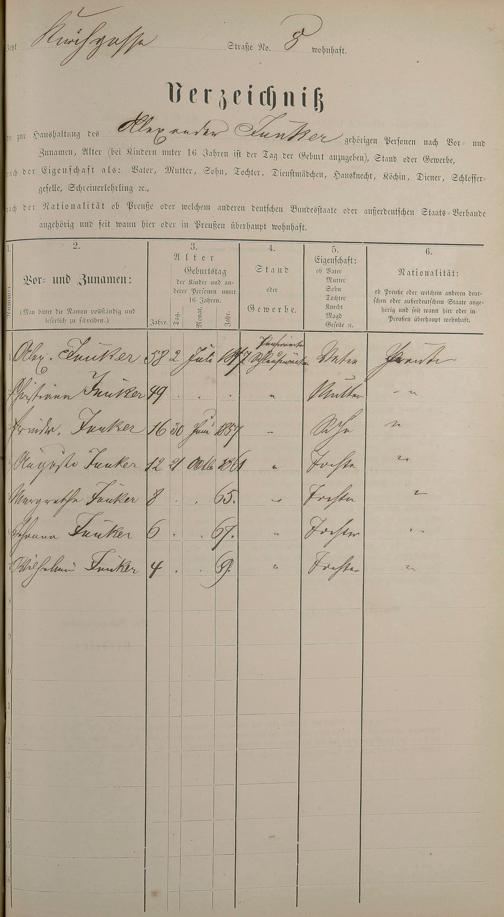 Kirchgasse Straße No. 8 wohnhaft.
Verzeichniß
zur Haushaltung des Alexander Junker gehörigen Personen nach Vor- und
Zunamen, Alter (bei Kindern unter 16 Jahren ist der Tag der Geburt anzugeben), Stand oder Gewerbe,
nach der Eigenschaft als: Vater, Mutter, Sohn, Tochter, Dienstmädchen, Hausknecht, Köchin, Diener, Schlosser-
geselle, Schreinerlehrling ꝛc.,
nach der Nationalität ob Preuße oder welchem anderen deutschen Bundesstaate oder außerdeutschen Staats-Verbande
angehörig und seit wann hier oder in Preußen überhaupt wohnhaft.
1. 2. 3. 4. 5. 6.
Nummer.
Vor- und Zunamen:
(Man bittet die Namen vollständig und leserlich zu schreiben.)
Alter
Geburtstag
der Kinder und an-
derer Personen unter
16 Jahren.
Jahre. Tag. Monat. Jahr.
Stand
oder
Gewerbe.
Eigenschaft:
ob Vater
Mutter
Sohn
Tochter
Knecht
Magd
Geselle ꝛc.
Nationalität:
ob Preuße oder welchem anderen deut-
schen oder außerdeutschen Staate ange-
hörig und seit wann hier oder in
Preußen überhaupt wohnhaft.
Alex. Junker 58 2 Juli Vater Preuße
Christiane Junker 49 . . . " Mutter " "
Junker 16 30 Juni 1857 " Sohn "
Auguste Junker 12 21 1861 " Tochter "
Margrethe Junker 8 . . 65. " Tochter "
Johanna Junker 6 . . 67. " Tochter "
Wilhelmine Junker 4 . . 69. " Tochter "